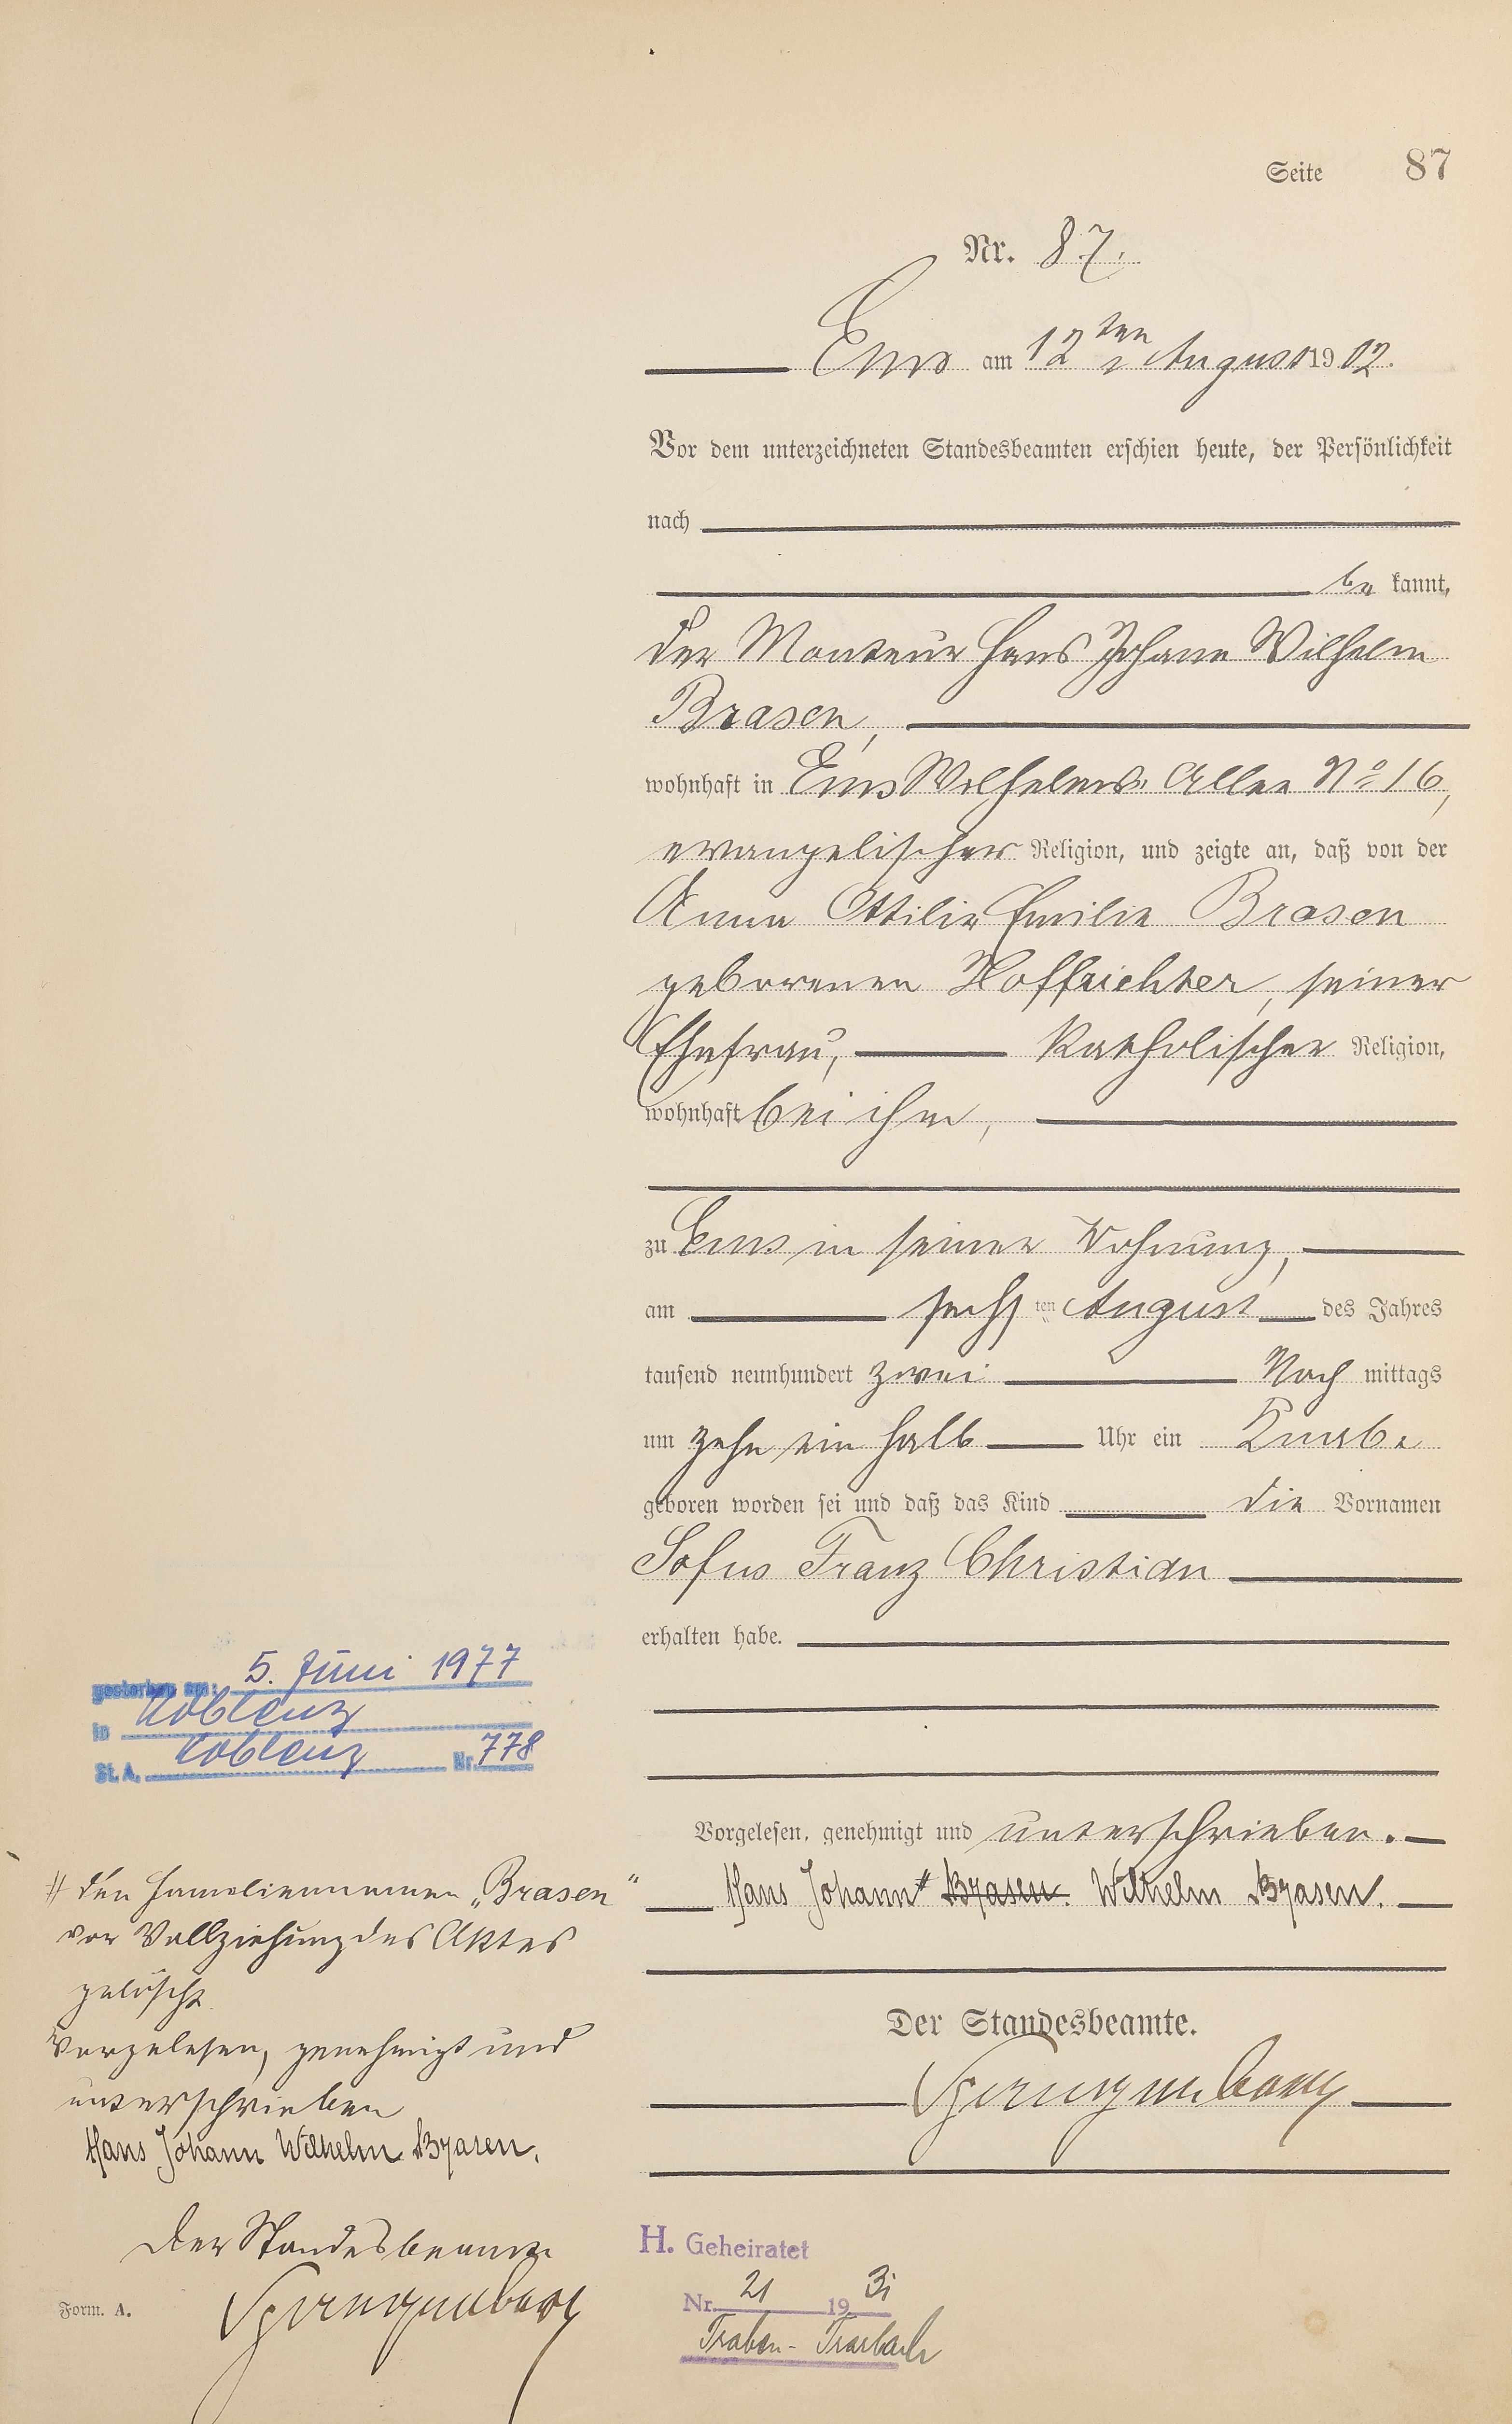 Seite 87
Nr. 87.
Ems am 12ten August 1902.
Vor dem unterzeichneten Standesbeamten erschien heute, der Persönlichkeit
nach
be kannt,
der Monteur Hans Johann Wilhelm
Brasen,
wohnhaft in Ems Wilhelms Allee No 16,
evangelischer Religion, und zeigte an, daß von der
Anna Ottilie Emilie Brasen
geborenen Hoffrichter, seiner
Ehefrau, katholischer Religion,
wohnhaft bei ihm,
zu Ems in seiner Wohnung,
am sechsten August des Jahres
tausend neunhundert zwei Nach mittags
um zehn ein halb Uhr ein Knabe
geboren worden sei und daß das Kind die Vornamen
Sofus Franz Christian
erhalten habe.
gestorben am: 5. Juni 1977
in Koblenz
St. A. Koblenz Nr. 778
Vorgelesen, genehmigt und unterschrieben.
Hans Johann # Brasen. Wilhelm Brasen.
# den Familiennamen „Brasen“
vor Vollziehung des Aktes
gelöscht.
Vorgelesen, genehmigt und
unterschrieben
Hans Johann Wilhelm Brasen.
Der Standesbeamte
Der Standesbeamte.
Form. A.
H. Geheiratet
Nr. 21 1931
Traben-Trarbach